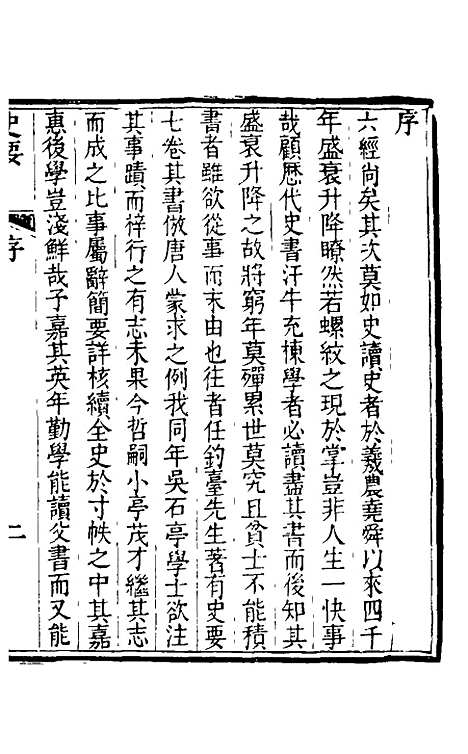 序
六經尚矣其次莫如史讀史者於羲農堯舜以來四千
年盛衰升降瞭然若螺紋之現於掌豈非人生一快事
哉顧歷代史書汗牛充棟學者必讀盡其書而後知其
盛衰升降之故將窮年莫殫累世莫究且貧士不能積
書者雖欲從事而末由也往者任釣臺先生著有史要
七卷其書倣唐人蒙求之例我同年吳石亭學士欲注
其事蹟而梓行之有志未果今哲嗣小亭茂才繼其志
而成之比事屬辭簡要詳核續全史於寸帙之中其嘉
惠後學豈淺鮮哉予嘉其英年勤學能讀父書而又能
史要
序
二